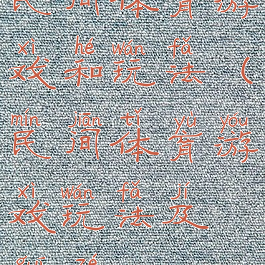 民间体育游
xì hé wán fǎ
戏和玩法（
mín jiān tǐ yù yóu
民间体育游
xì wán fǎ jí
戏玩法及